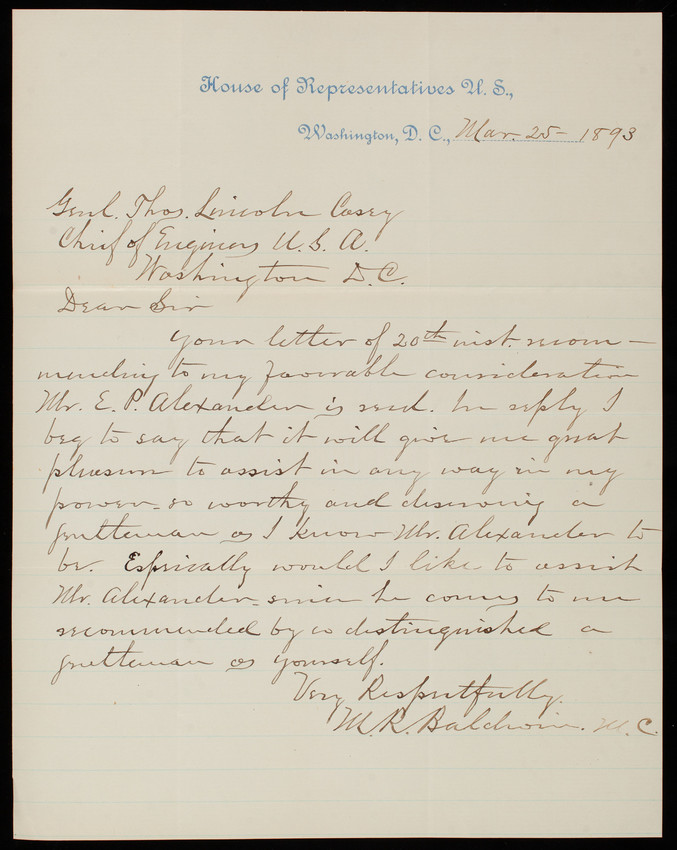 House of Representatives U. S.,
Washington, D. C., Mar. 25- 1893
Genl. Thos. Lincoln Casey
Chief of Engineers U. S. A.
Washington D.C.
Dear Sir
Your letter of 20th inst. recom-
mending to my favorable consideration
Mr. E. P. Alexander is recd. In reply I
beg to say that it will give me great
pleasure to assist in any way in my
power - so worthy and deserving a
gentleman as I know Mr. Alexander to
be. Especially would I like to assist
Mr. Alexander - since he comes to me
recommended by so distinguished a
gentleman as yourself.
Very Respectfully.
M. R. Baldwin. M. C.